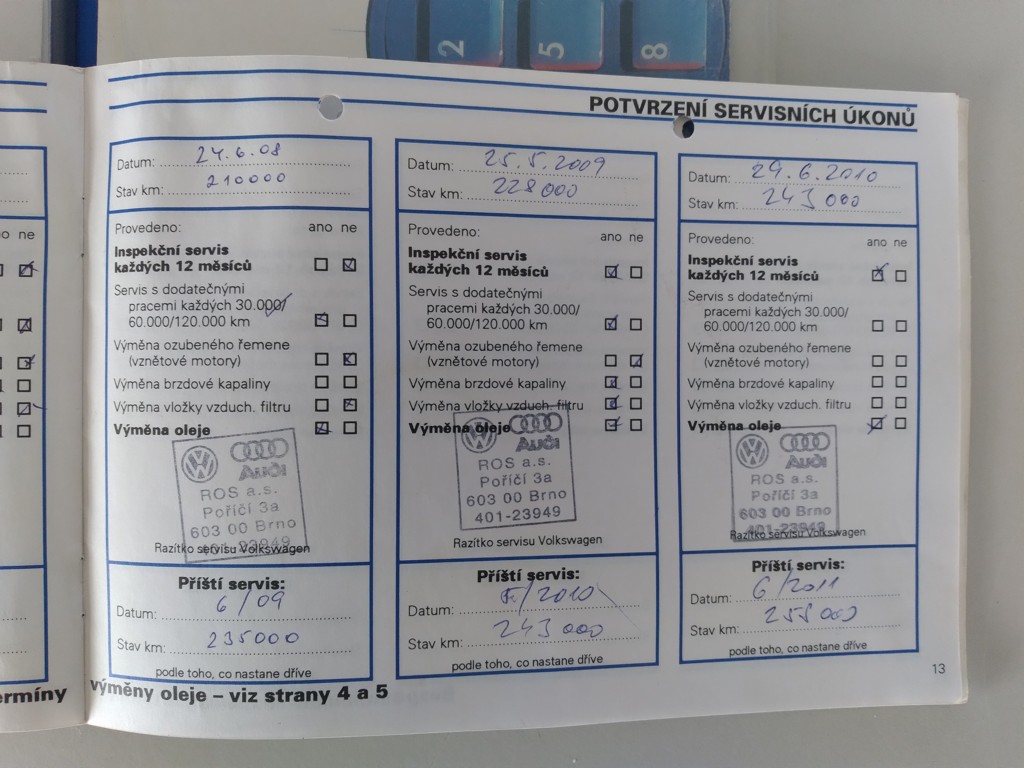 2
5
8
POTVRZENÍ SERVISNÍCH ÚKONŮ
Datum: 24.6.08
Stav km: 210000
Provedeno: ano ne
Inspekční servis
každých 12 měsíců
Servis s dodatečnými
pracemi každých 30.000/
60.000/120.000 km
Výměna ozubeného řemene
(vznětové motory)
Výměna brzdové kapaliny
Výměna vložky vzduch. filtru
Výměna oleje
Audi
ROS a.s.
Poříčí 3a
603 00 Brno
Razítko servisu Volkswagen
Příští servis:
Datum: 6/09
Stav km: 235000
podle toho, co nastane dříve
Datum: 25.5.2009
Stav km: 228000
Provedeno: ano ne
Inspekční servis
každých 12 měsíců
Servis s dodatečnými
pracemi každých 30.000/
60.000/120.000 km
Výměna ozubeného řemene
(vznětové motory)
Výměna brzdové kapaliny
Výměna vložky vzduch. filtru
Výměna oleje
Audi
ROS a.s.
Poříčí 3a
603 00 Brno
401-23949
Razítko servisu Volkswagen
Příští servis:
Datum: /2010
Stav km: 243000
podle toho, co nastane dříve
Datum: 29.6.2010
Stav km: 243000
Provedeno: ano ne
Inspekční servis
každých 12 měsíců
Servis s dodatečnými
pracemi každých 30.000/
60.000/120.000 km
Výměna ozubeného řemene
(vznětové motory)
Výměna brzdové kapaliny
Výměna vložky vzduch. filtru
Výměna oleje
Audi
ROS a.s.
Poříčí 3a
603 00 Brno
401-23949
Razítko servisu Volkswagen
Příští servis:
Datum: 6/2011
Stav km: 258000
podle toho, co nastane dříve
13
výměny oleje – viz strany 4 a 5
ne
ermíny